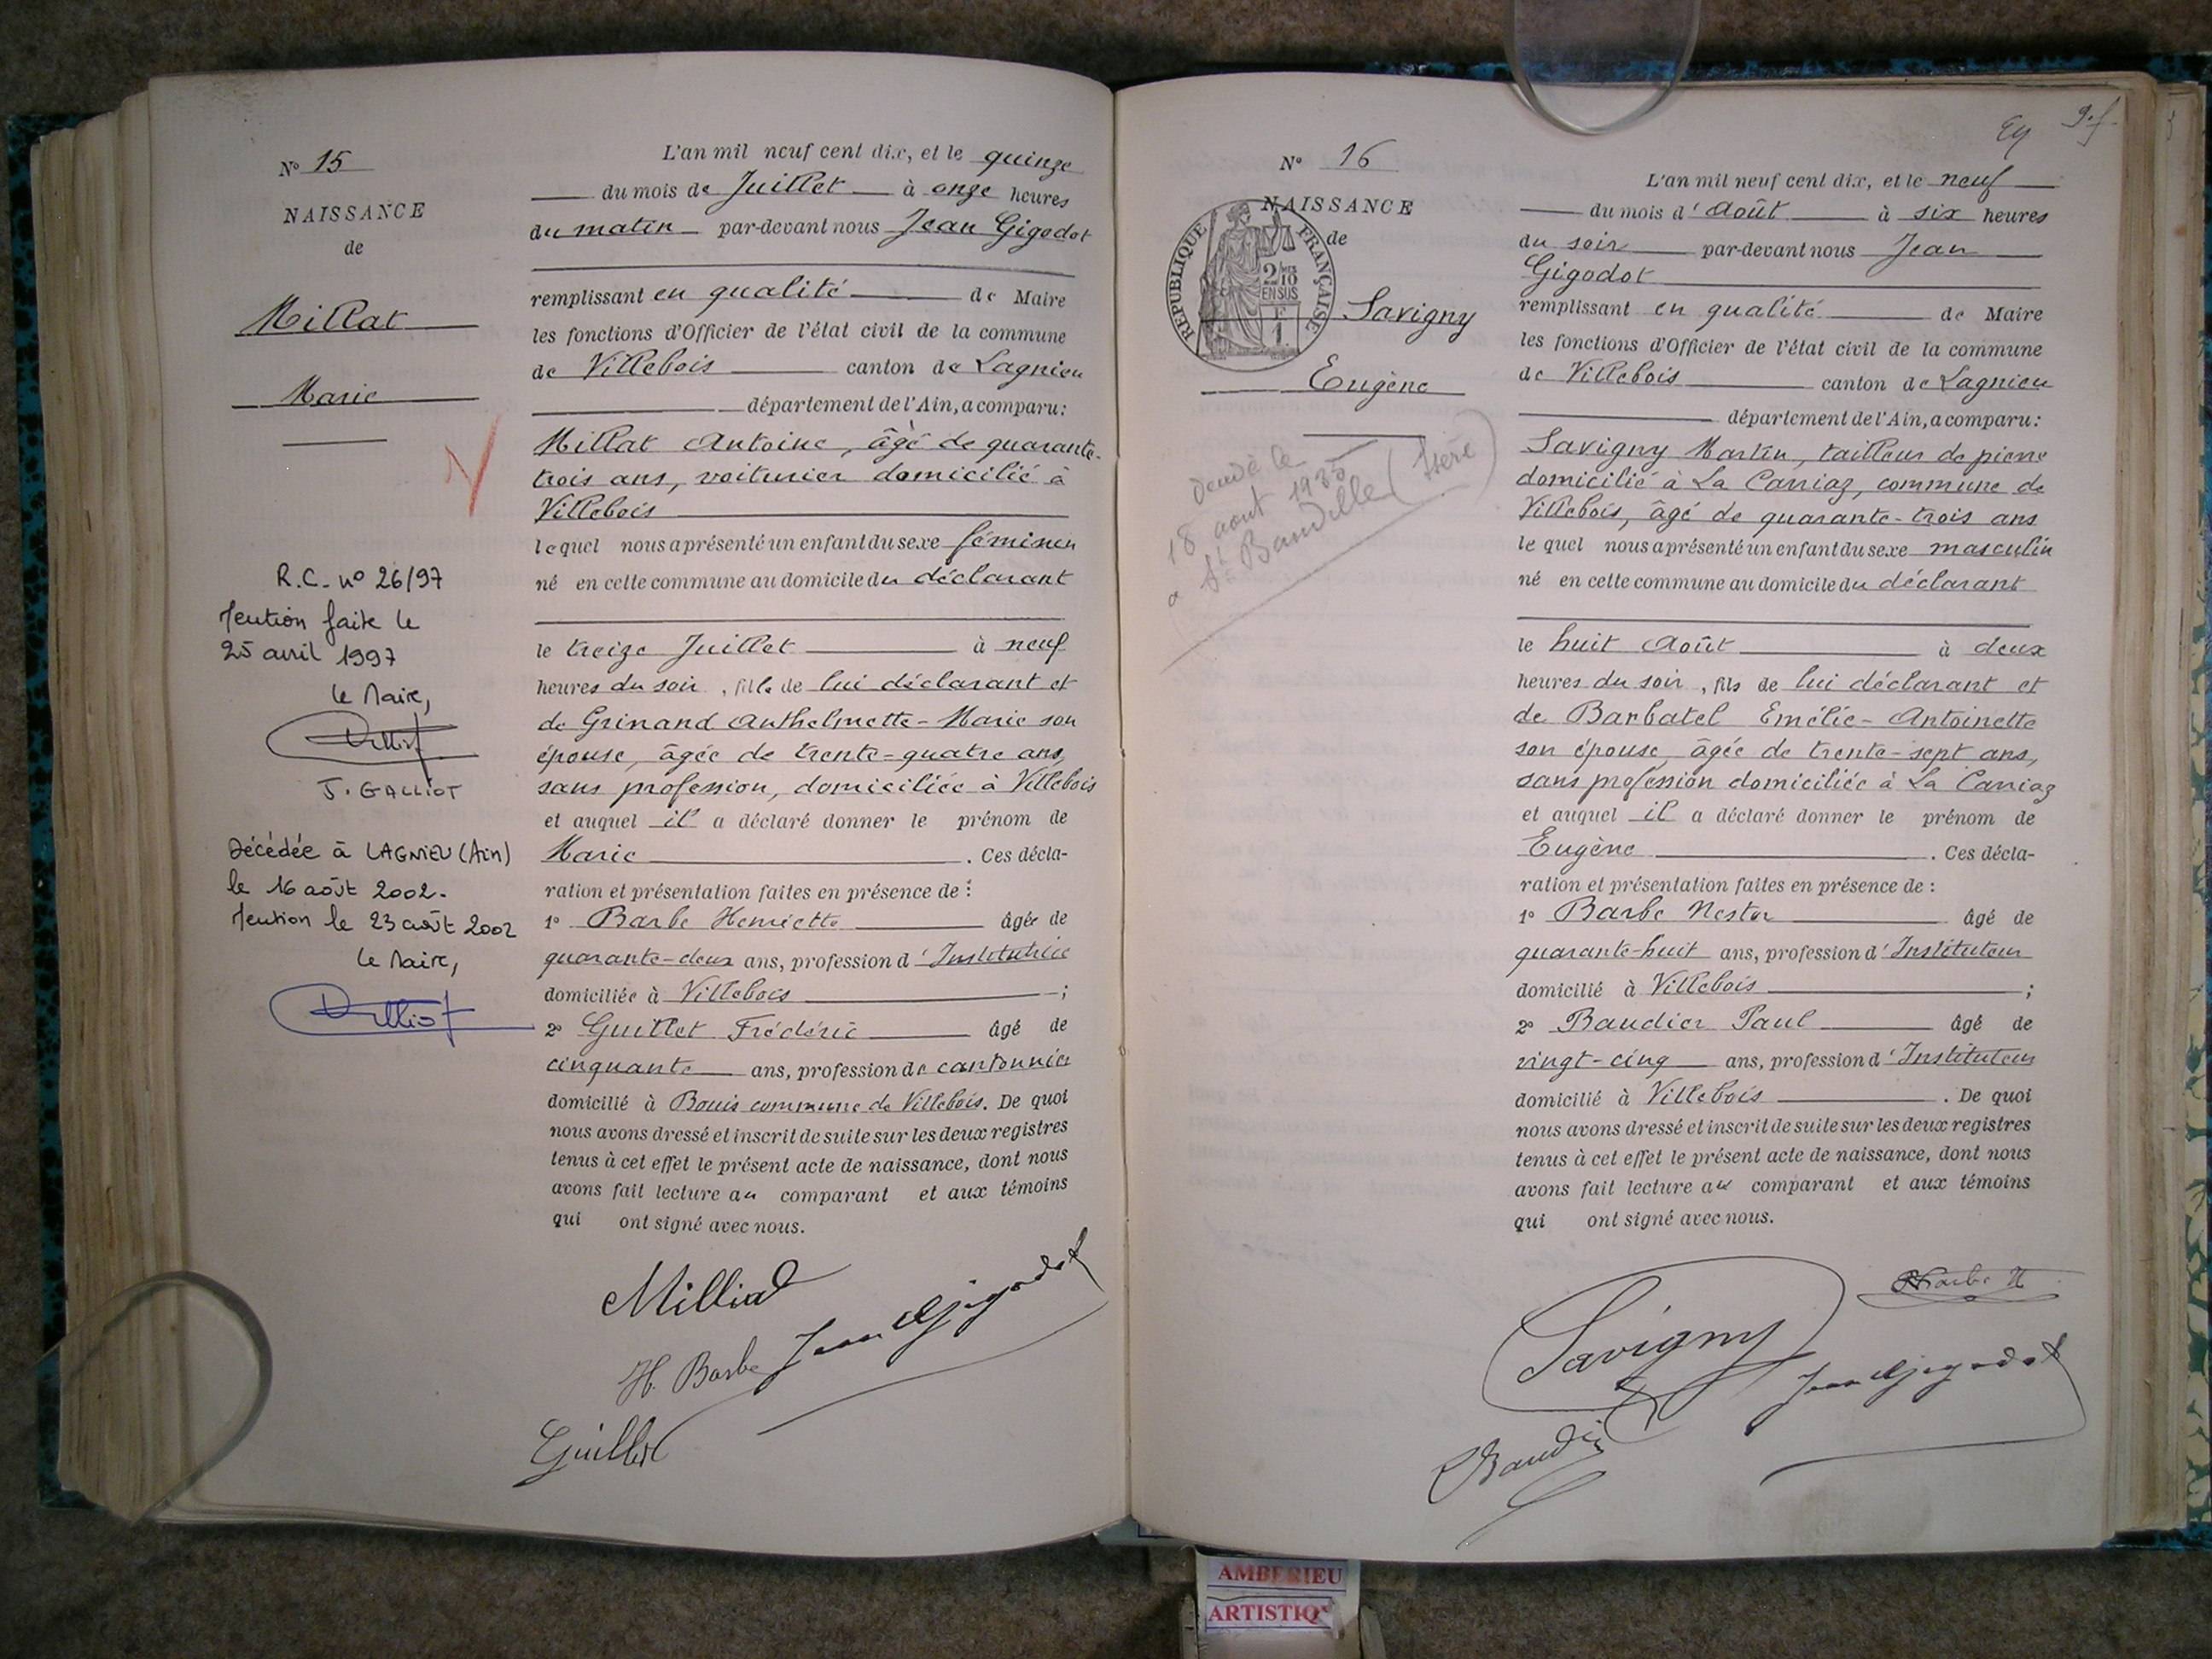 N° 15
NAISSANCE
de
Millat
Marie
R.C. n° 26/97
Mention faite le
25 avril 1997
Le Maire,
J. GALLIOT
Décédée à LAGNIEU (Ain)
le 16 août 2002.
Mention le 23 août 2002
Le Maire,
L'an mil neuf cent dix, et le quinze
du mois de Juillet à onze heures
du matin par-devant nous Jean Gigodot
remplissant en qualité de Maire
les fonctions d'Officier de l'état civil de la commune
de Villebois canton de Lagnieu
département de l'Ain, a comparu:
Millat Antoine, âgé de quarante-
trois ans, voiturier domicilié à
Villebois
lequel nous a présenté un enfant du sexe féminin
né en cette commune au domicile du déclarant
le treize Juillet à neuf
heures du soir, fille de lui déclarant et
de Grinand Anthelmette-Marie son
épouse, âgée de trente-quatre ans,
sans profession, domiciliée à Villebois
et auquel il a déclaré donner le prénom de
Marie. Ces décla-
ration et présentation faites en présence de :
1° Barbe Henriette âgée de
quarante-deux ans, profession d'Institutrice
domiciliée à Villebois ;
2° Guillet Frédéric âgé de
cinquante ans, profession de cantonnier
domicilié à Bouis commune de Villebois. De quoi
nous avons dressé et inscrit de suite sur les deux registres
tenus à cet effet le présent acte de naissance, dont nous
avons fait lecture au comparant et aux témoins
qui ont signé avec nous.
Milliat
H. Barbe Jean Gigodot
Guillet
N° 16
NAISSANCE
de
RÉPUBLIQUE FRANÇAISE
2/10
EN SUS
Savigny
Eugène
18 aout
à St Baudille (Isère)
L'an mil neuf cent dix, et le neuf
du mois d'Août à six heures
du soir par-devant nous Jean
Gigodot
remplissant en qualité de Maire
les fonctions d'Officier de l'état civil de la commune
de Villebois canton de Lagnieu
département de l'Ain, a comparu:
Savigny Martin, tailleur de pierre
domicilié à La Carriaz, commune de
Villebois, âgé de quarante-trois ans
lequel nous a présenté un enfant du sexe masculin
né en cette commune au domicile du déclarant
le huit Août à deux
heures du soir, fils de lui déclarant et
de Barbatel Emélie-Antoinette
son épouse, âgée de trente-sept ans,
sans profession domiciliée à La Carriaz
et auquel il a déclaré donner le prénom de
Eugène. Ces décla-
ration et présentation faites en présence de :
1° Barbe Nestor âgé de
quarante-huit ans, profession d'Instituteur
domicilié à Villebois ;
2° Baudier Paul âgé de
vingt-cinq ans, profession d'Instituteur
domicilié à Villebois. De quoi
nous avons dressé et inscrit de suite sur les deux registres
tenus à cet effet le présent acte de naissance, dont nous
avons fait lecture au comparant et aux témoins
qui ont signé avec nous.
Barbe N
Savigny
Jean Gigodot
Baudier
AMBERIEU
ARTISTIQ